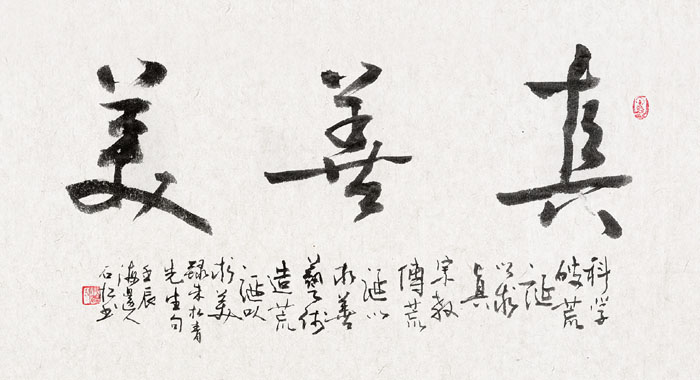 真善美
科学
破荒
诞
以求
真
宗教
傳荒
诞以
求善
藝术
造荒
诞以
求美
録朱松青
先生句
壬辰
海人
石书